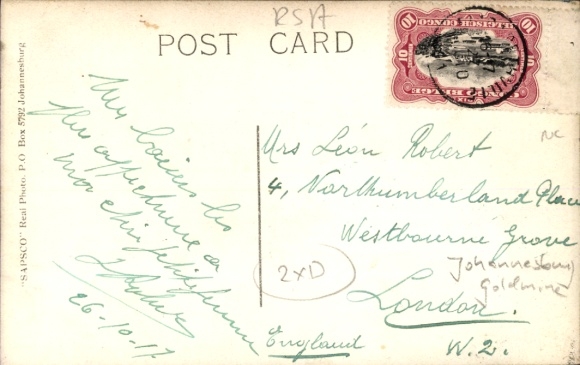 RSA
POST CARD
"SAPSCO" Real Photo. P.O Box 5792 Johannesburg
10
10
BELGISCH CONGO
CONGO BELGE
Mes baisers les
plus
ma chère petite femme
26-10-17
Mrs Léon Robert
4, Northumberland Place
Westbourne Grove
London.
England
W. 2.
NC
2xD
Johannesburg
goldmine